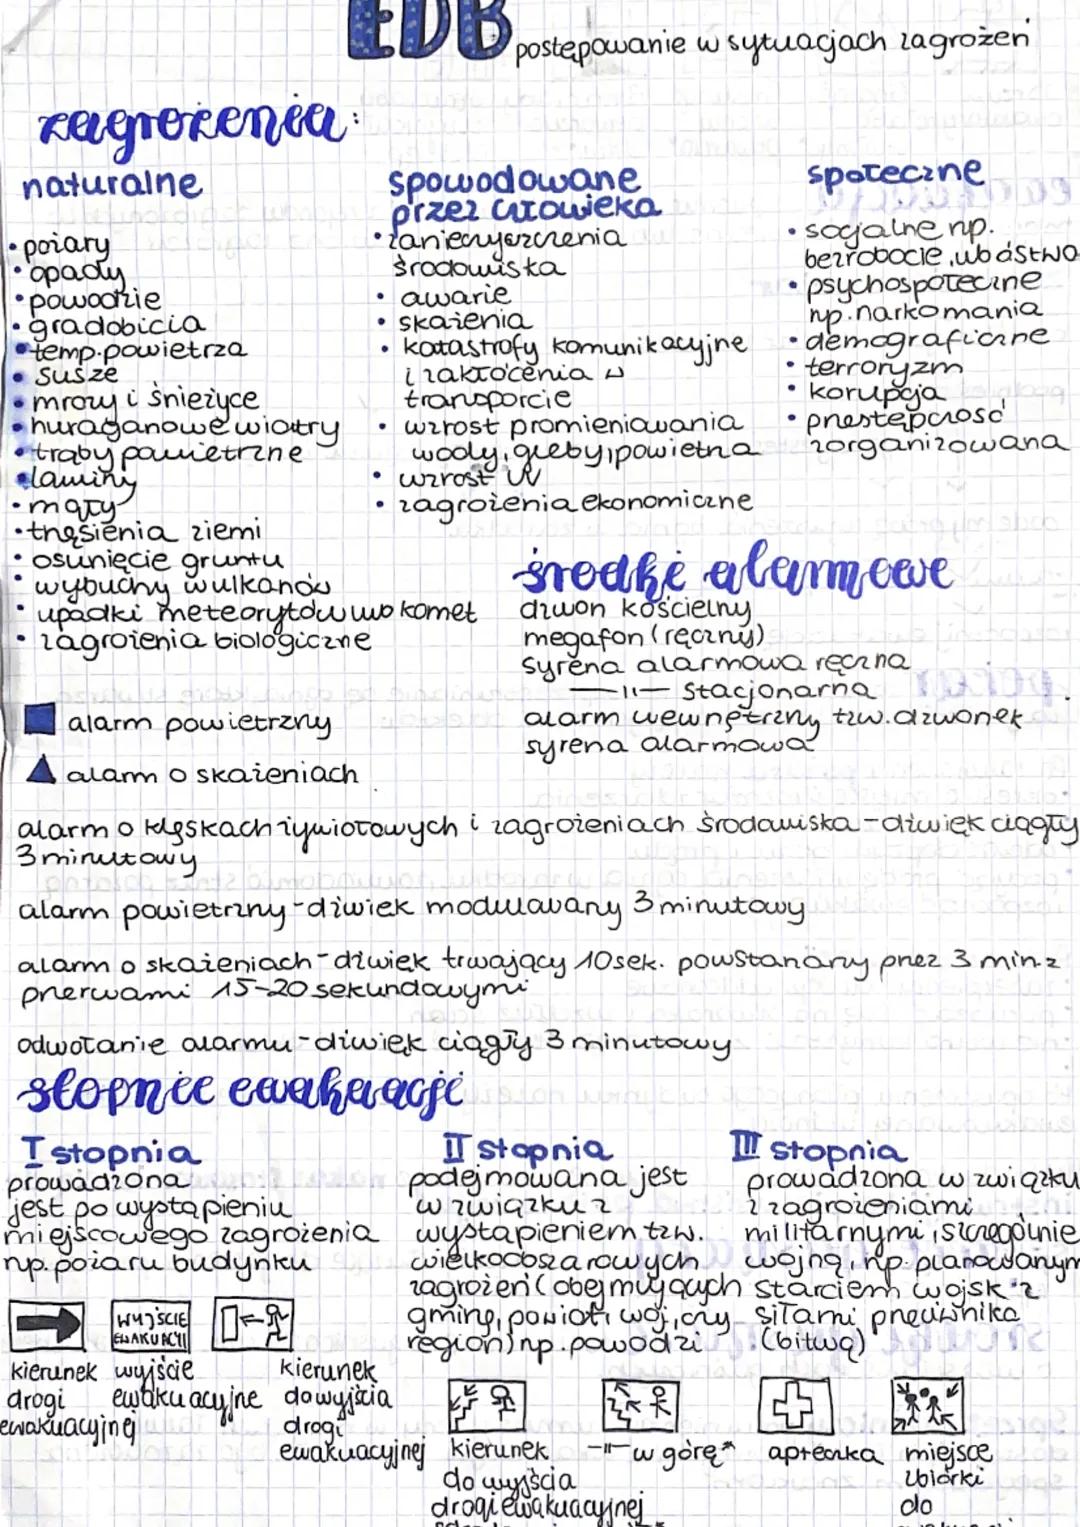 EDB postępowanie w sytuacjach zagrożeń
zagrożenia:
naturalne
• pożary
• opady
• powodzie
• gradobicia
• temp. powietrza
• susze
• mrozy i śnieżyce
• huraganowe wiatry
• trąby powietrzne
• lawiny
• mgły
• trzęsienia ziemi
• osunięcie gruntu
• wybuchy wulkanów
• upadki meteorytów lub komet
• zagrożenia biologiczne
spowodowane
przez człowieka
• zanieczyszczenia
środowiska
• awarie
• skażenia
• katastrofy komunikacyjne
i zakłócenia w
transporcie
• wzrost promieniowania
wody, gleby, powietrza
• wzrost UV
• zagrożenia ekonomiczne
społeczne
• socjalne np.
bezrobocie, ubóstwo
• psychospołeczne
np. narkomania
• demograficzne
• terroryzm
• korupcja
• przestępczość
zorganizowana
środki alarmowe
dzwon kościelny
megafon (ręczny)
syrena alarmowa ręczna
—11— stacjonarna
alarm wewnętrzny tzw. dzwonek
syrena alarmowa
alarm powietrzny
alarm o skażeniach
alarm o klęskach żywiołowych i zagrożeniach środowiska - dźwięk ciągły
3 minutowy
alarm powietrzny - dźwiek modulowany 3 minutowy
alarm o skażeniach - dźwięk trwający 10 sek. powstarzany przez 3 min. z
przerwami 15-20 sekundowymi
odwołanie alarmu - dźwięk ciągły 3 minutowy
stopnie ewakuacji
I stopnia
prowadzona
jest po wystąpieniu
miejscowego zagrożenia
np. pożaru budynku
II stopnia
podejmowana jest
w związku z
wystąpieniem tzw.
wielkoobszarowych
zagrożeń (obejmujących
gminę, powiat, woj, czy
region) np. powodzi
III stopnia
prowadzona w związku
z zagrożeniami
militarnymi, szczególnie
wojną, np. planowanym
starciem wojsk z
siłami przeciwnika
(bitwą)
WYJŚCIE
EWAKUACJI
kierunek
drogi
ewakuacyjnej
wyjście
ewakuacyjne
kierunek
do wyjścia
drogi
ewakuacyjnej
kierunek
do wyjścia
drogi ewakuacyjnej
—11— w górę"
apteczka
miejsce
zbiórki
do